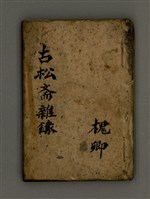 古松斎雜錄
槐卿